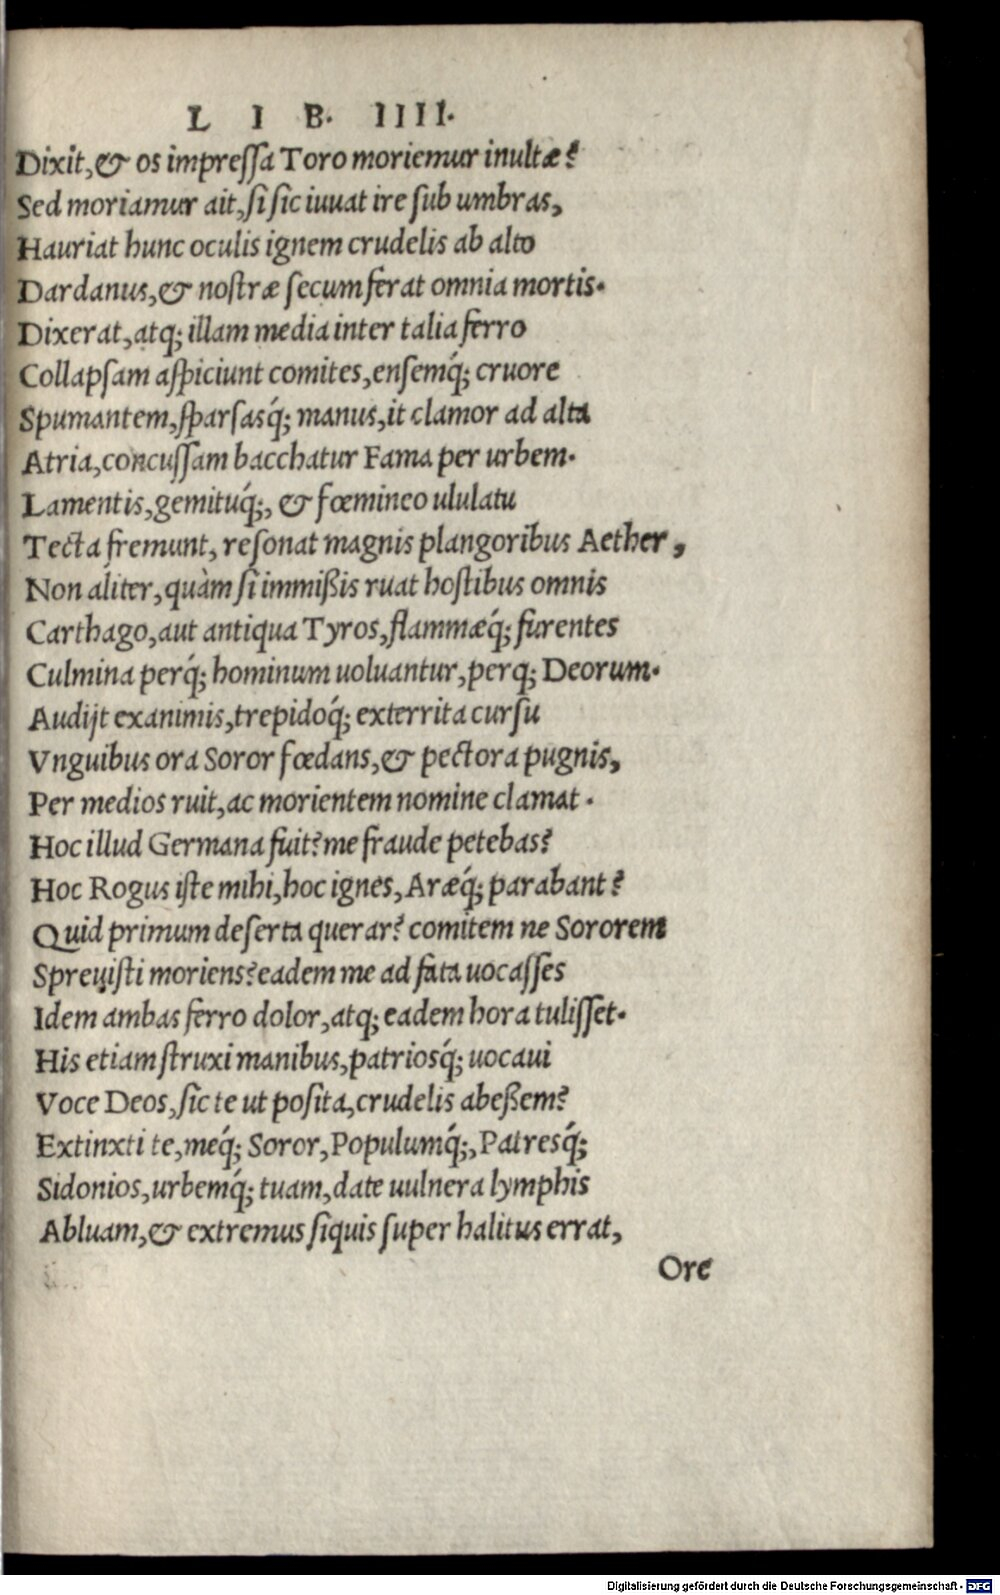 L I B. IIII.
Dixit,& os impreſſa Toro moriemur inultæ?
Sed moriamur ait,ſi ſic iuuat ire ſub umbras,
Hauriat hunc oculis ignem crudelis ab alto
Dardanus,& noſtræ ſecum ferat omnia mortis.
Dixerat,atq; illam media inter talia ferro
Collapſam aſpiciunt comites,enſemq́; cruore
Spumantem,ſparſasq́; manus,it clamor ad alta
Atria,concuſſam bacchatur Fama per urbem.
Lamentis,gemituq́;, & fœmineo ululatu
Tecta fremunt, reſonat magnis plangoribus Aether,
Non aliter,quàm ſi immißis ruat hoſtibus omnis
Carthago,aut antiqua Tyros,flammæq́; furentes
Culmina perq́; hominum uoluantur,perq; Deorum.
Audijt exanimis,trepidoq́; exterrita curſu
Vnguibus ora Soror fœdans,& pectora pugnis,
Per medios ruit,ac morientem nomine clamat.
Hoc illud Germana fuit?me fraude petebas?
Hoc Rogus iſte mihi,hoc ignes,Aræq́; parabant?
Quid primum deſerta querar? comitem ne Sororem
Spreuiſti moriens?eadem me ad fata uocaſſes
Idem ambas ferro dolor,atq; eadem hora tuliſſet.
His etiam ſtruxi manibus,patriosq́; uocaui
Voce Deos,ſic te ut poſita,crudelis abeßem?
Extinxti te,meq́; Soror,Populumq́;,Patresq́;
Sidonios,urbemq́; tuam,date uulnera lymphis
Abluam,& extremus ſiquis ſuper halitus errat,
Ore
Digitalisierung gefördert durch die Deutsche Forschungsgemeinschaft - DFG